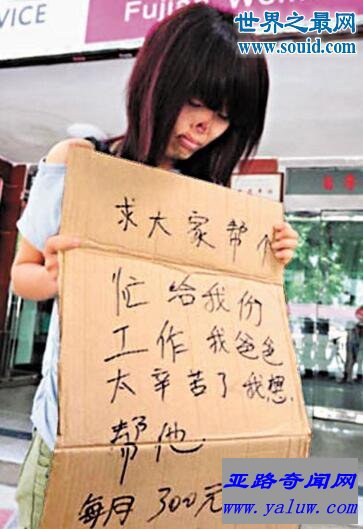 VICE
Fujian Wom
世界之最网
www.souid.com
求大家帮个
忙给我份
工作我爸爸
太辛苦了我想
帮他
每月300元
亚路奇闻网
www.yaluw.com